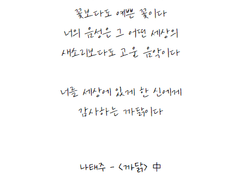 꽃보다도 예쁜 꽃이다
너의 음성은 그 어떤 세상의
새소리보다도 고운 음악이다
너를 세상에 있게 한 신에게
감사하는 까닭이다
나태주 - <까닭> 中